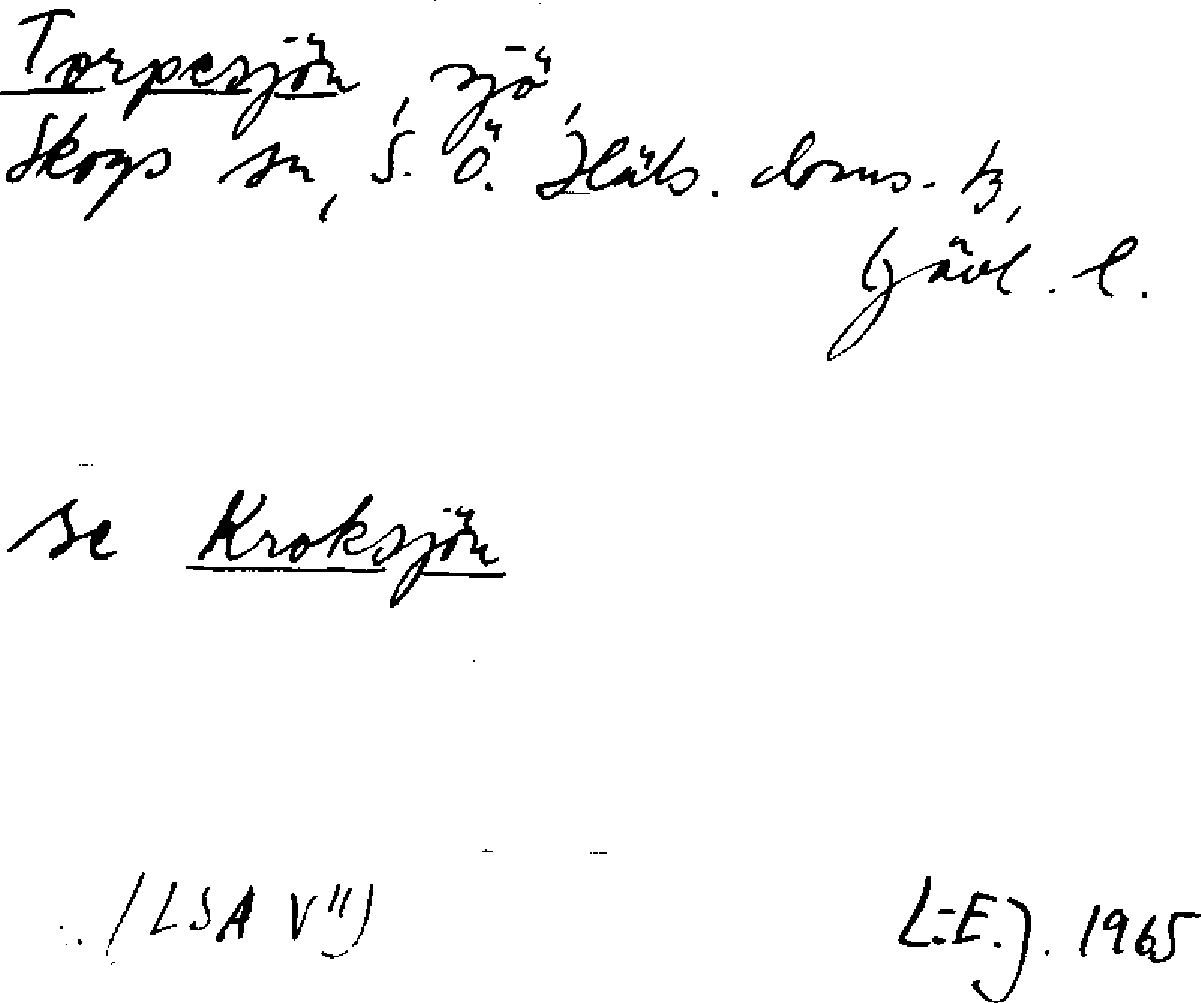 Torpesjön, sjö,
Skogs sn, S. Ö. Häls. doms. tg,
Gävl. l.
se Kroksjön
(LSA V")
L-E.J. 1965